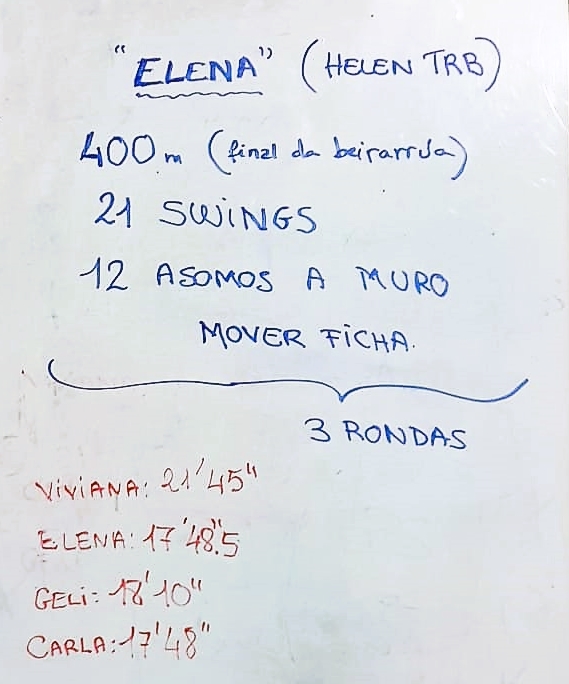 "ELENA" (HELEN TRB)
400m (final da beirarrúa)
21 SWINGS
12 ASOMOS A MURO
MOVER FICHA.
3 RONDAS
VIVIANA: 21'45"
ELENA: 17'48".5
GELI: 18'10"
CARLA: 17'48"